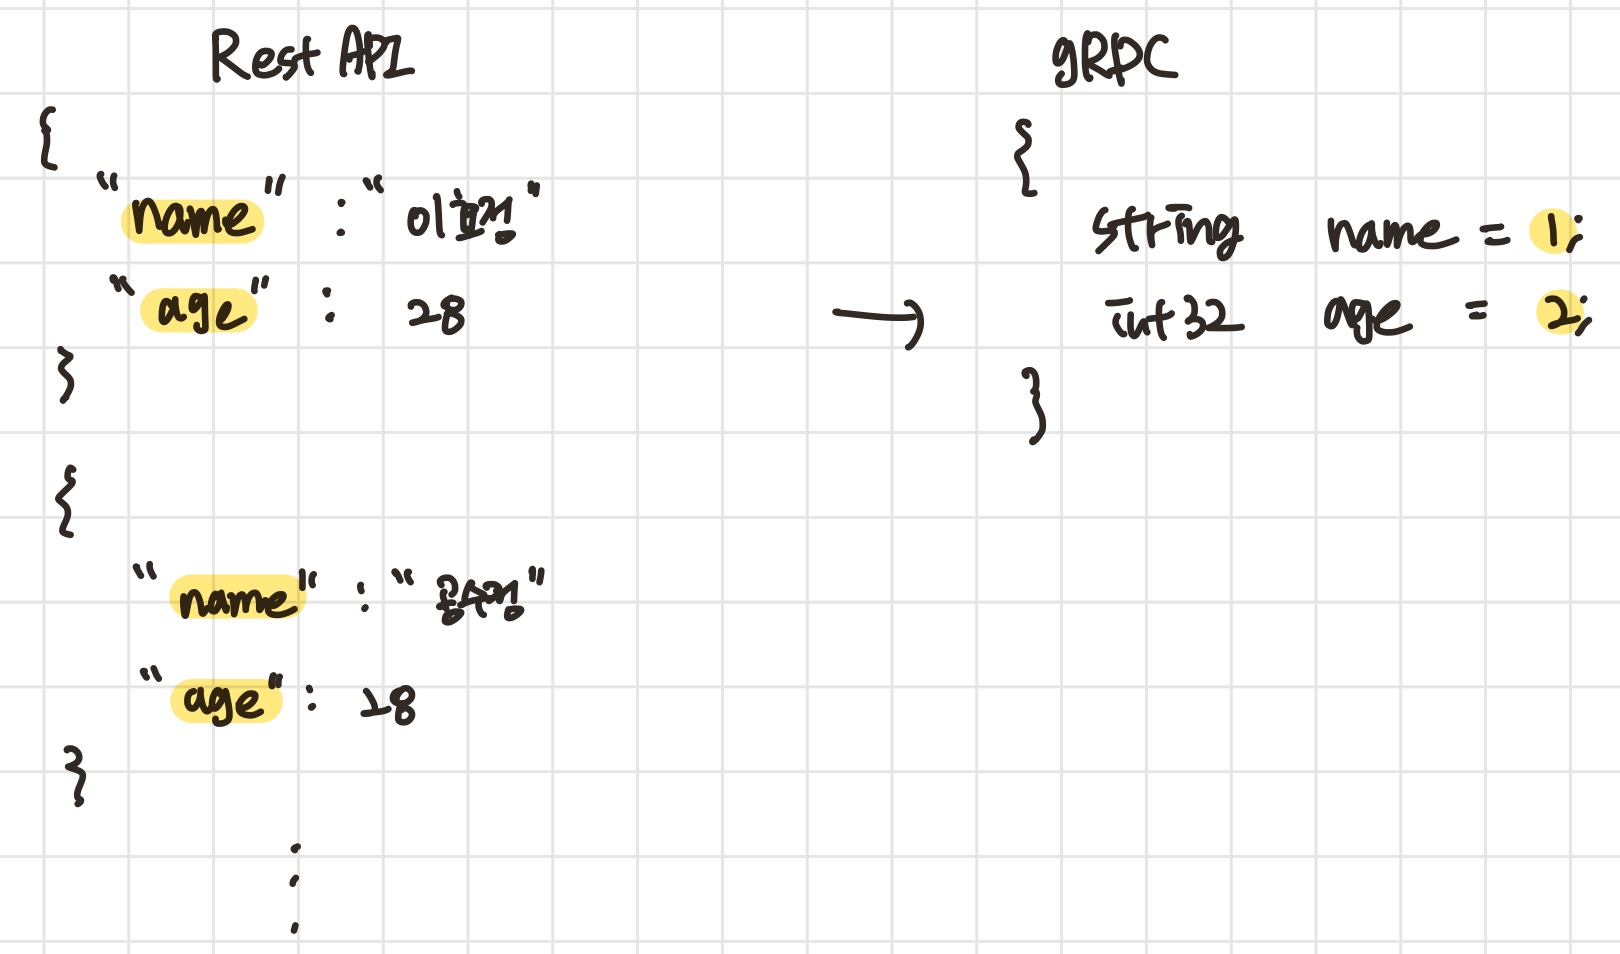 Rest API
{
"name" : "이효정"
"age" : 28
}
{
"name" : "홍수정"
"age" : 28
}
gRPC
{
string name = 1;
int32 age = 2;
}